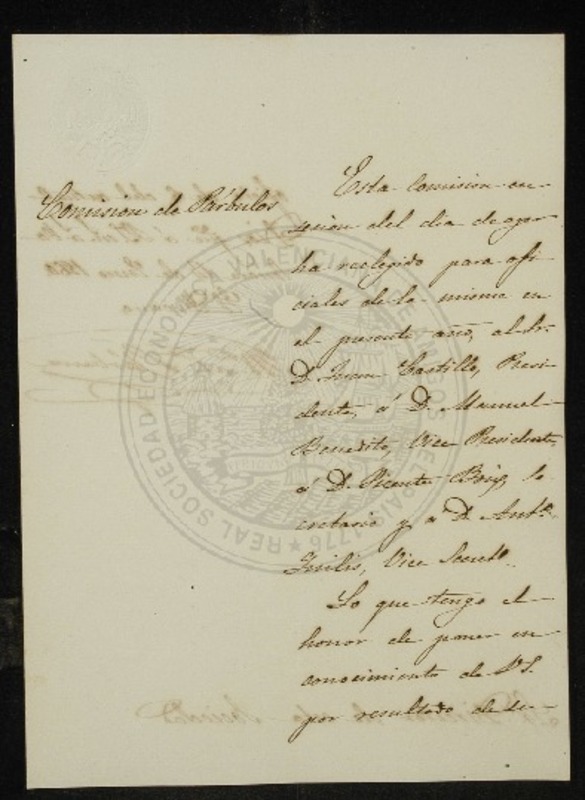 Comision de Párbulos
Esta Comision en
sesion del dia de ayer
ha reelegido para ofi-
ciales de la misma en
el presente año, al Sr.
D. Juan Castillo, Presi-
dente, á D. Manuel
Benedito, Vice Presidente,
á D. Vicente Boix, Se-
cretario y á D. Antº.
Vice Secretº.
Lo que tengo el
honor de poner en
conocimiento de V.S.
por resultado de su
REAL SOCIEDAD ECONOMICA VALENCIANA DE AMIGOS DEL PAIS 1776